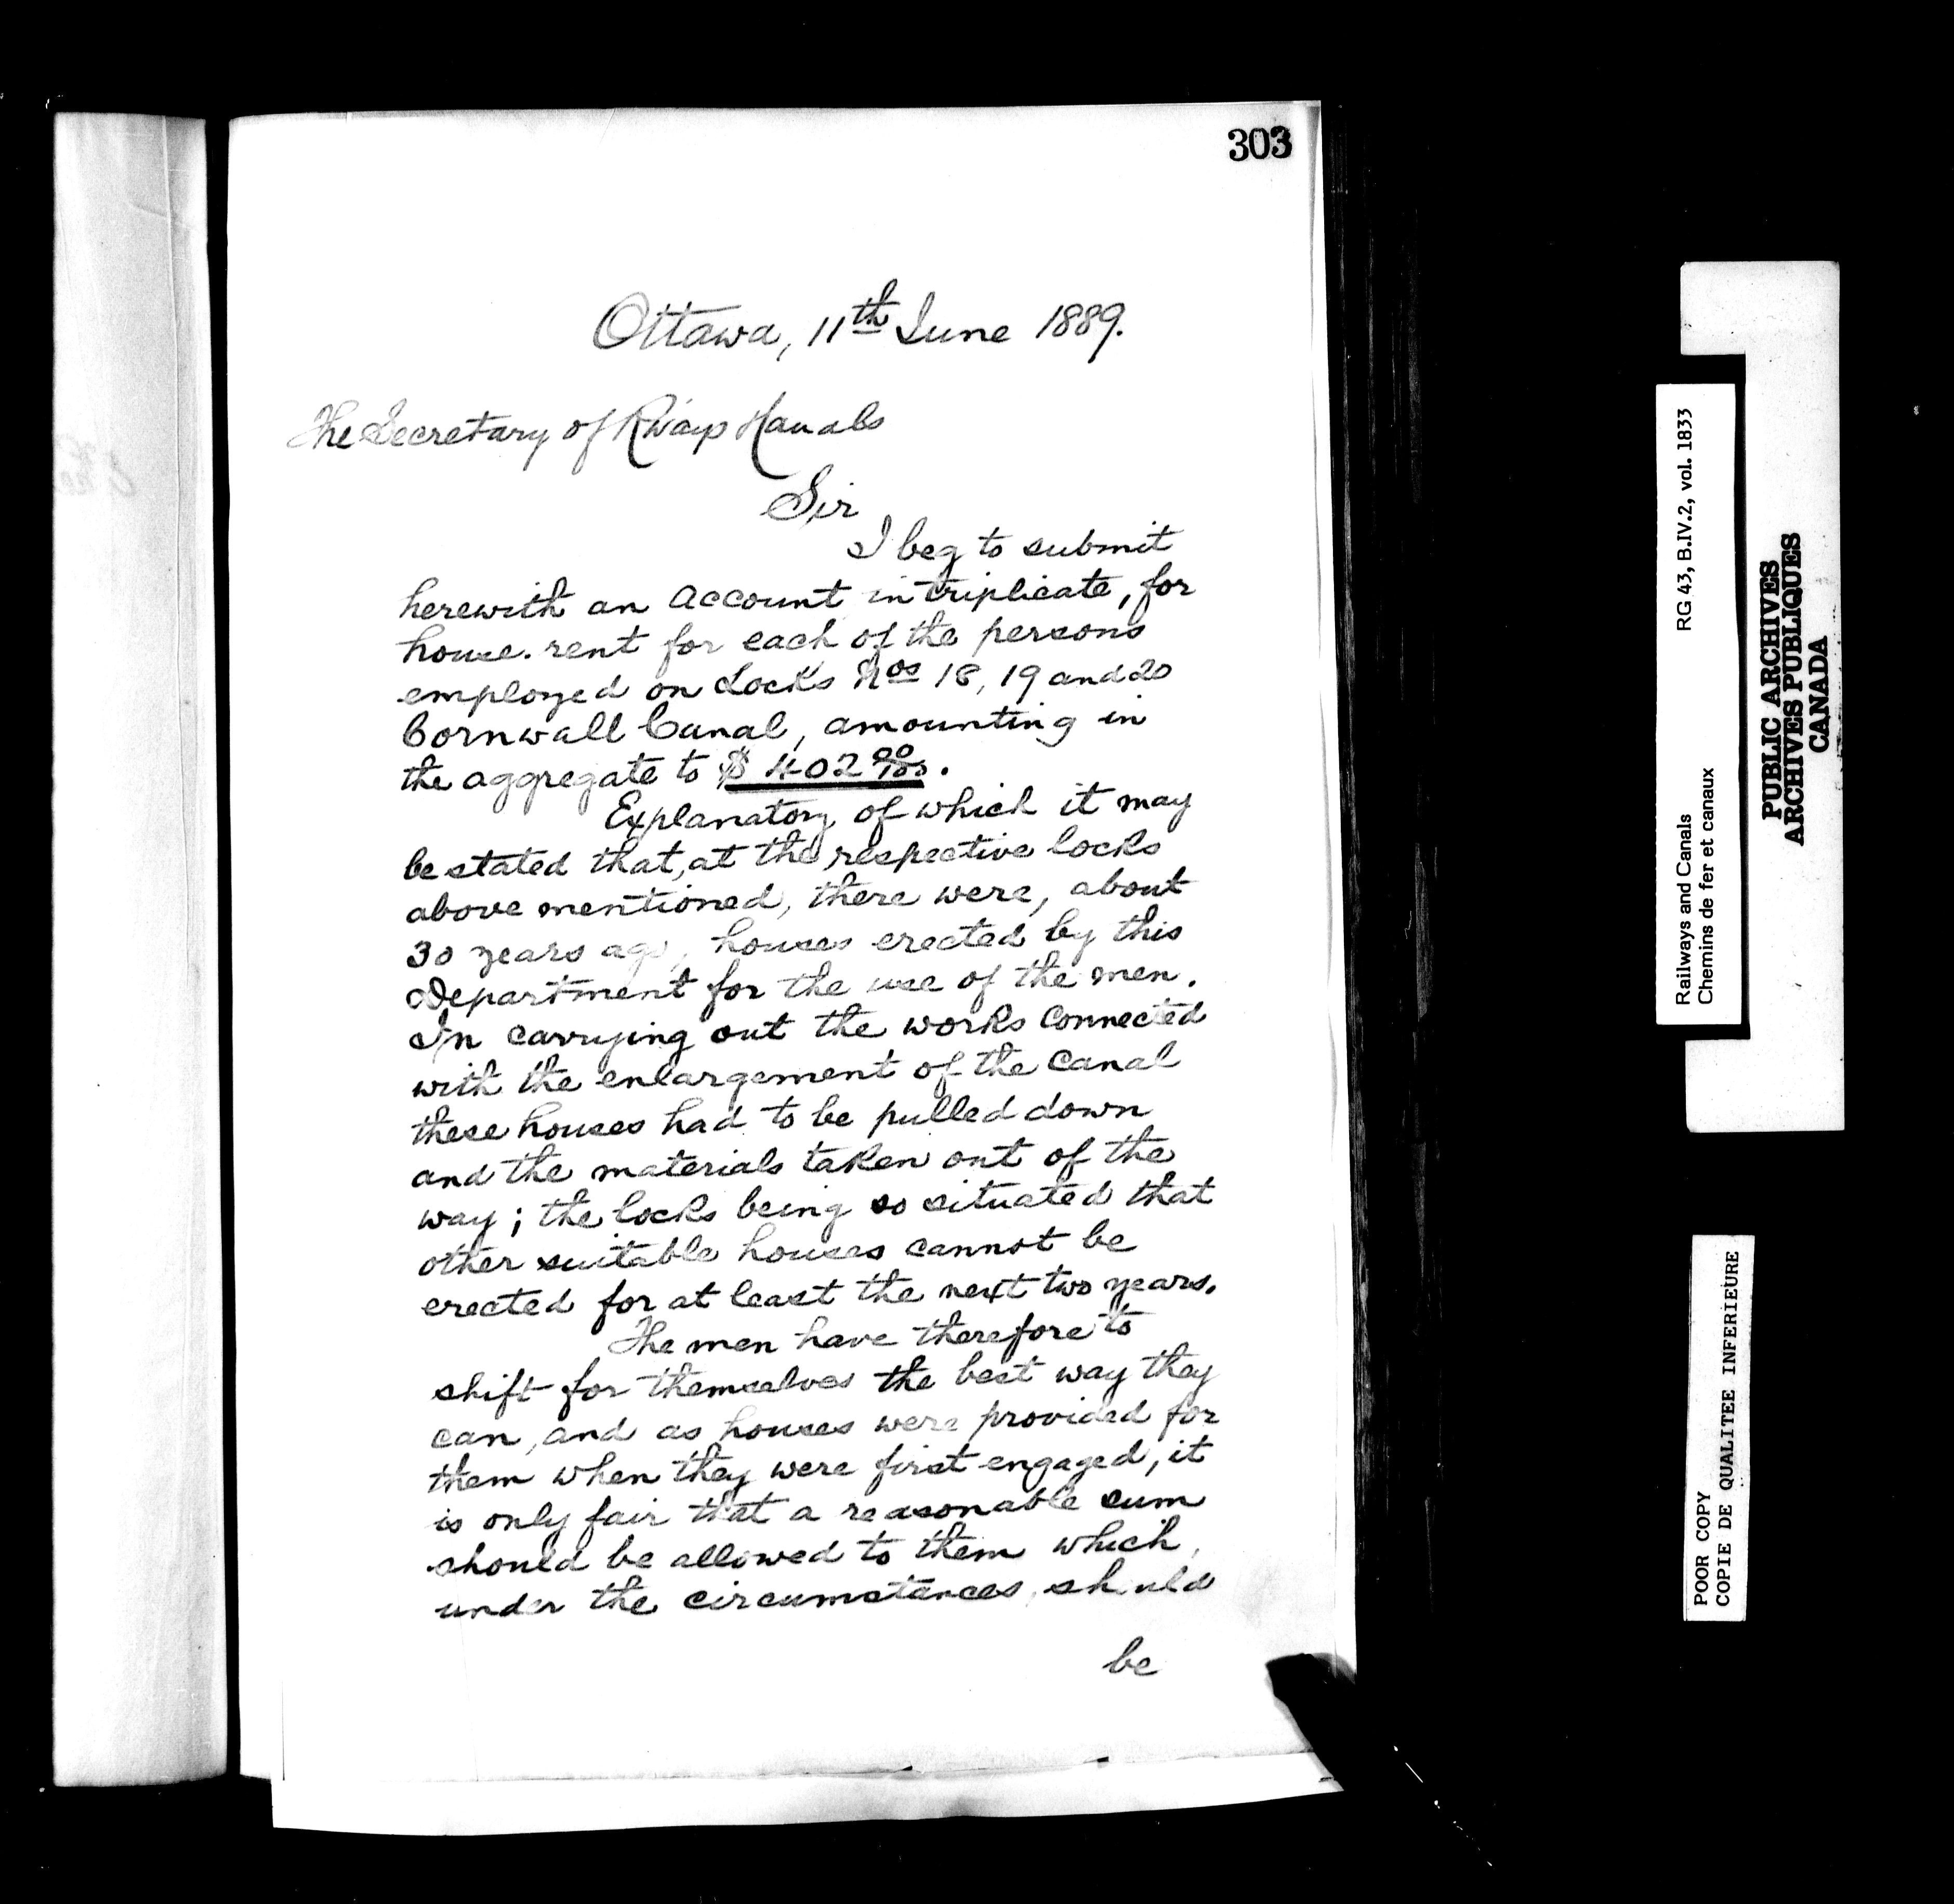 303
Ottawa, 11th June 1889.
The Secretary of Rways & Canals
Sir
I beg to submit
herewith an account in triplicate, for
house-rent for each of the persons
employed on Locks Nos 18, 19 and 20
Cornwall Canal, amounting in
the aggregate to $402 00/100.
Explanatory of which it may
be stated that, at the respective locks
above mentioned, there were, about
30 years ago, houses erected by this
Department for the use of the men.
In carrying out the works connected
with the enlargement of the canal
these houses had to be pulled down
and the materials taken out of the
way; the locks being so situated that
other suitable houses cannot be
erected for at least the next two years.
The men have therefore to
shift for themselves the best way they
can, and as houses were provided for
them when they were first engaged, it
is only fair that a reasonable sum
should be allowed to them which,
under the circumstances, should
be
RG 43, B.IV.2, vol. 1833
Railways and Canals
Chemins de fer et canaux
PUBLIC ARCHIVES
ARCHIVES PUBLIQUES
CANADA
POOR COPY
COPIE DE QUALITEE INFERIEURE